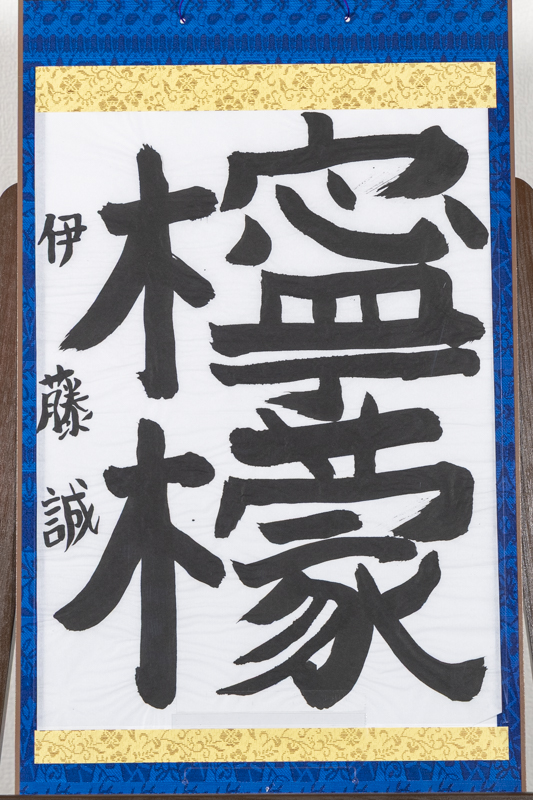 檸檬
伊藤誠